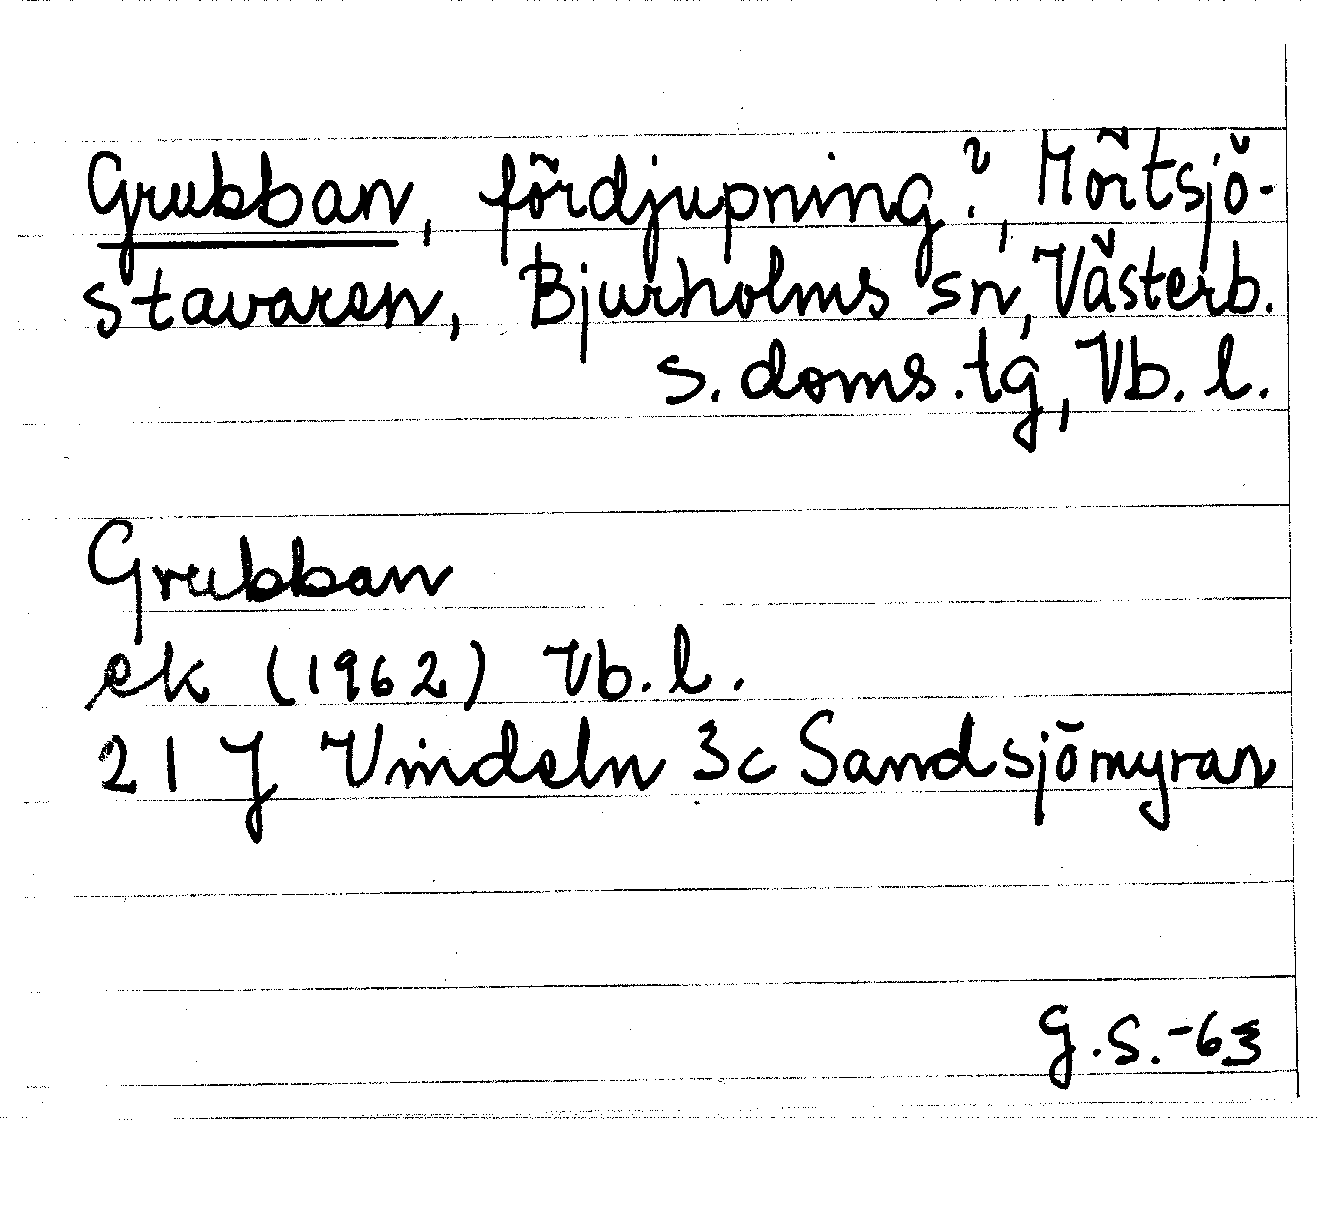 Grubban, fördjupning?, Mörtsjö-
stavaren, Bjurholms sn, Västerb.
s. doms. tg, Vb. l.
Grubban
ek (1962) Vb. l.
21 J Vindeln 3c Sandsjömyran
G.S.-63